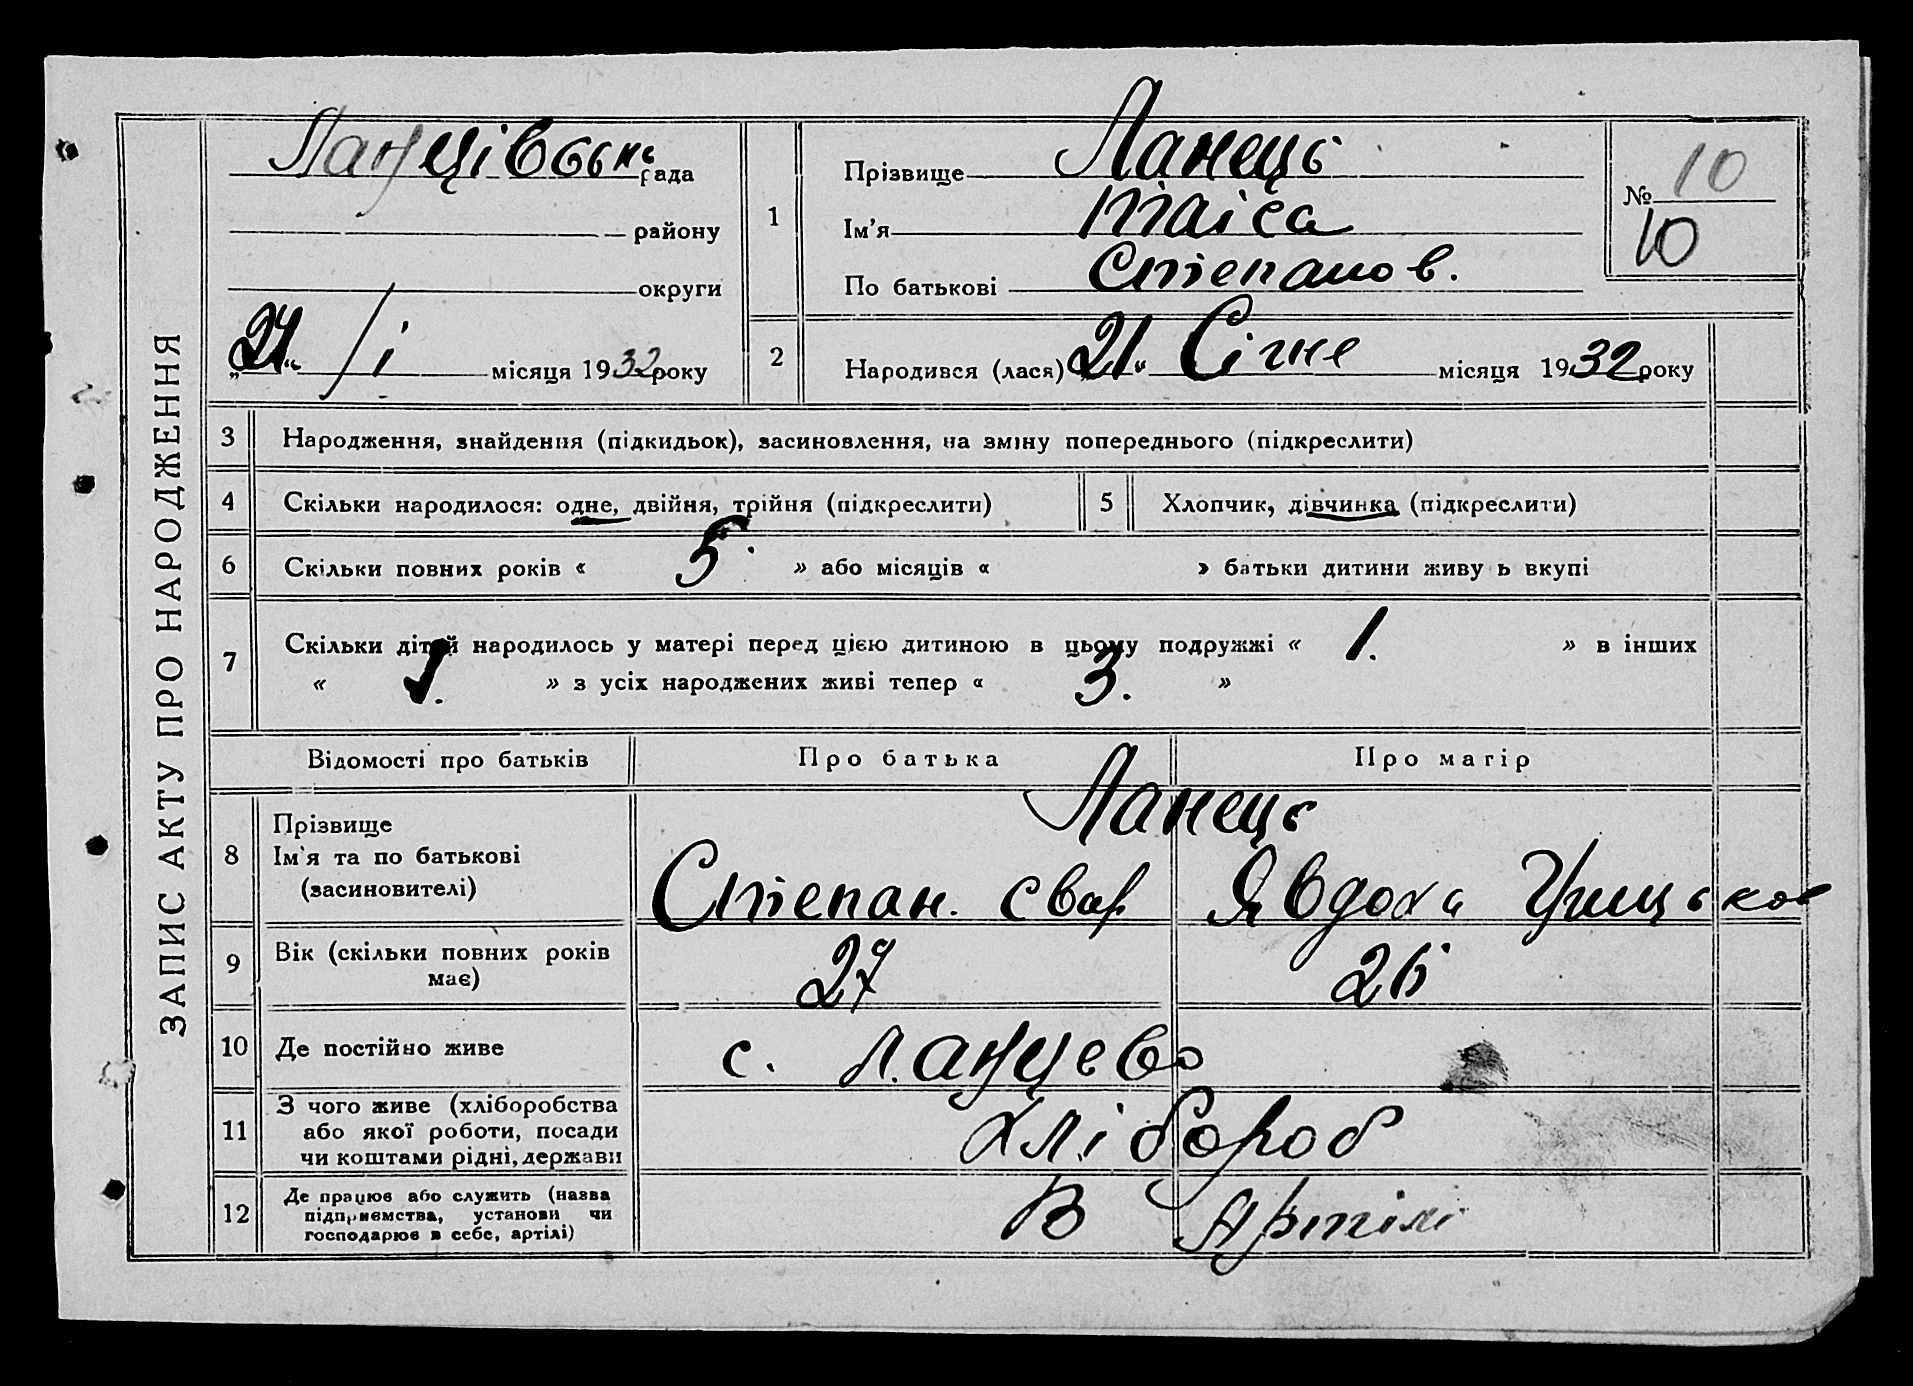 ЗАПИС АКТУ ПРО НАРОДЖЕННЯ
Ланцівська рада
району
округи
„24“ / і місяця 1932 року
1
Прізвище Ланець
Ім'я Таіса
По батькові Степанов.
№ 10
10
2
Народився (лася) „21“ Січне місяця 1932 року
3 Народження, знайдення (підкидьок), засиновлення, на зміну попереднього (підкреслити)
4 Скільки народилося: одне, двійня, трійня (підкреслити)
5 Хлопчик, дівчинка (підкреслити)
6 Скільки повних років « 5 » або місяців « » батьки дитини живуть вкупі
7 Скільки дітей народилось у матері перед цією дитиною в цьому подружжі « 1. » в інших
« 1. » з усіх народжених живі тепер « 3. »
Відомості про батьків Про батька Про матір
8 Прізвище
Ім'я та по батькові
(засиновителі)
Ланець
Степан. Явдоха Грицьков
9 Вік (скільки повних років
має)
27 26
10 Де постійно живе с. Ланцево
11 З чого живе (хліборобства
або якої роботи, посади
чи коштами рідні, держави
Хлібороб
12 Де працює або служить (назва
підприємства, установи чи
господарює в себе, артілі)
В Артілі